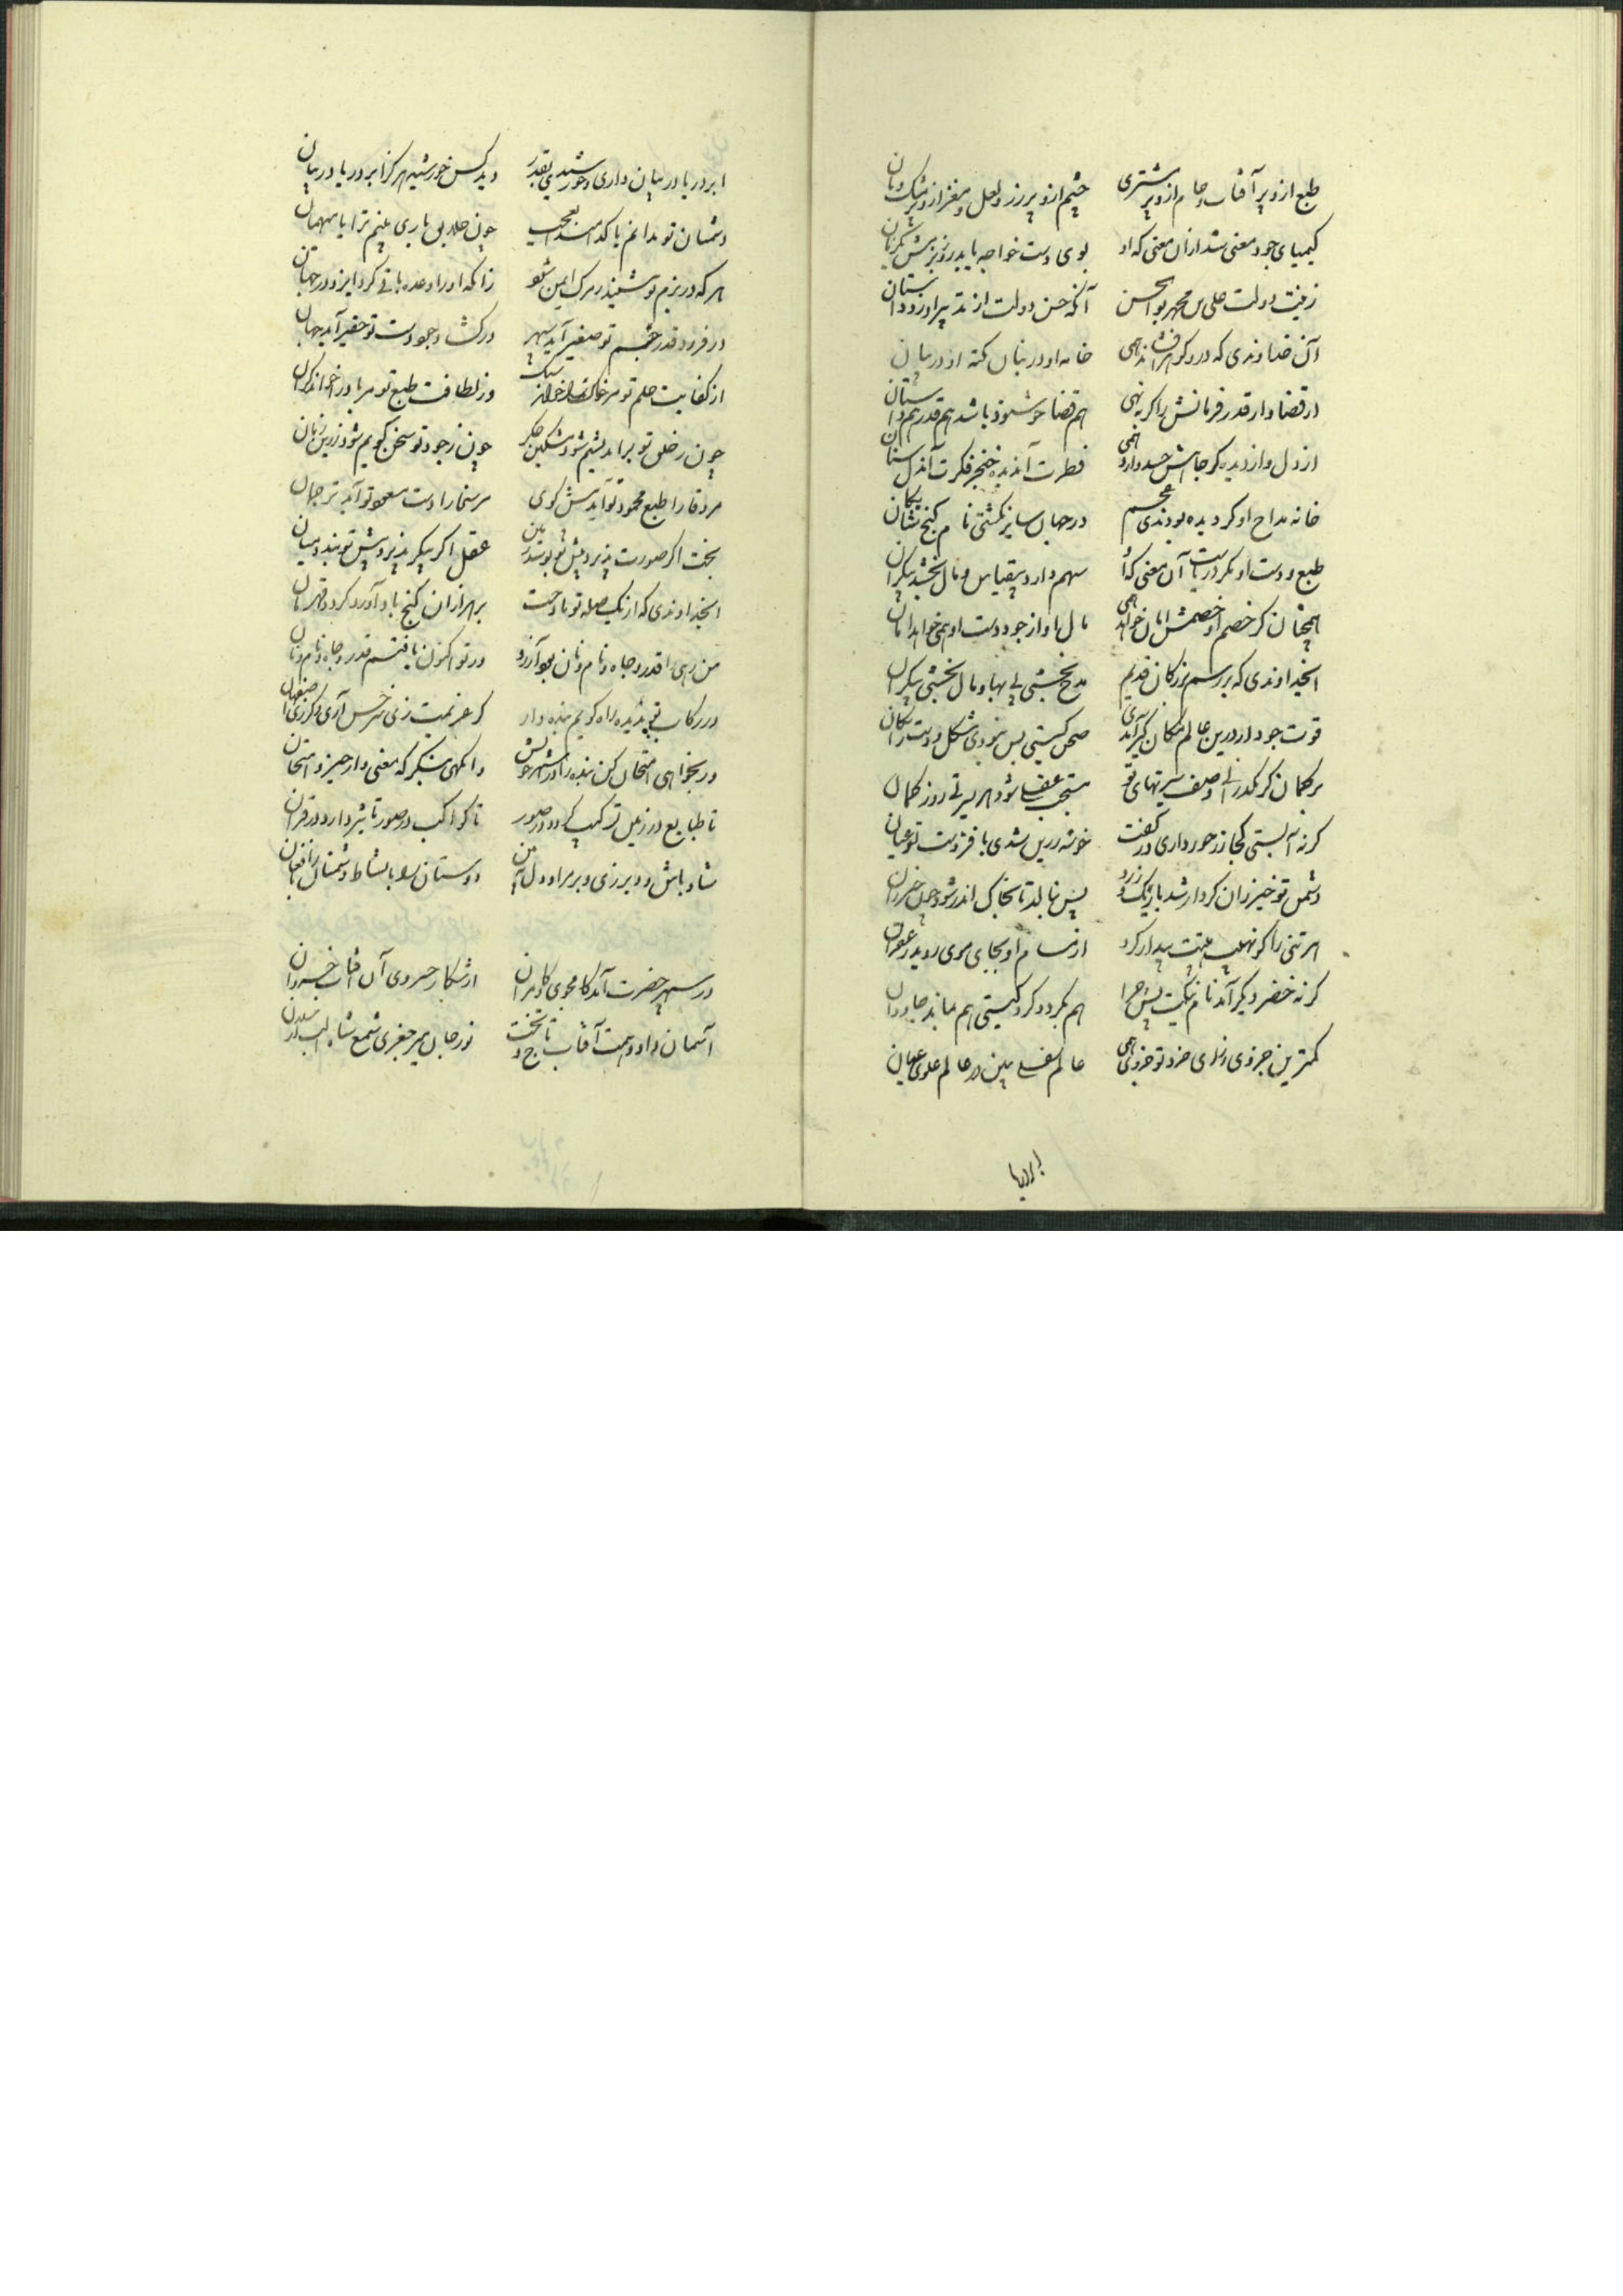 طبع ازو پر آفتاب و جام ازو پر مشتری چشم ازو پر زر و لعل و مغز ازو پر مشک و بان
کیمیای جود معنی شد ازان معنی که او بوی دست خواجه یابد روز بزمش
زینت دولت علی بن محمد بوالحسن آنکه حسن دولت از تدبیر او زد داستان
آن خداوندی که در و گوهر افشاند همی خامه او در بنان نکته او در بیان
از قضا و از قدر فرمانش را گر نهی هم قضا خوشنود باشد هم قدر همداستان
از دل و از دیده گر جاهش حسد دارد همی فطرت آن دیده خنجر فکرت آن دل سنان
خانه مداح او گر دیده بودندی عجم در جهان سایر نگشتی نام گنج شایگان
طبع و دست او مگر دریاست آن معنی که آن سهم دارد بیقیاس و مال بخشد بیکران
همچنان کز خصم او خصمش امان خواهد همی مال او از جود دست او همی خواهد امان
ایخداوندی که بر رسم بزرگان قدیم مدح بخشی بی بها و مال بخشی بیکران
قوت جود ار درین عالم مکان گیر آیدی صحن گیتی بس نبودی شکل دستت را مکان
بر کمان گر بگذرانی وصف سیرتهای تو مستجب عفسا شود هر تیر تو روز کمان
گر نه آبستی کجا زر جود داری در کفت خوشه زرین شدی با قرب دستت
دشمن تو خیزران کردار شد باریک و زرد پس نبالد تا بخاک اندر شود چون خیزران
هر تنی را کو نهیب هیبتت بیدار کرد از مسام او بجای موی روید زعفران
گر نه خضر دیگر آمد نام نیکت پس چرا هم بگردد گرد گیتی هم بماند جاودان
کمترین جزوی زرای خرد تو جزوی همی عالم سفلی مبین در عالم علوی عیان
ابر دریا
ابر دریا در بنان داری و خورشیدی بقدر دید کس خورشید هرگز ابر و دریا در بنان
دشمنان تو ندانم با که اسد ای عجب چون خلایق باری بینم ترا یا میهمان
هر که در بزم تو بنشیند ز مرگ ایمن شود زانکه او را وعده باقی کرد ایزد در جهان
در فرود قدر چشم تو صغیر آید سپهر در گشاد جود دست تو حقیر آید جهان
از کفایت حلم تو مر خاک را خواند سبک وز لطافت طبع تو مر باد را خواند گران
چون ز خلق تو براندیشم شود مشکین جگر چون ز جود تو سخن گویم شود زرین زبان
مر وفا را طبع محمود تو آید پیش گوی مر سخا را دست مسعود تو آید ترجمان
بخت اگر صورت پذیرد پیش تو بوسد زمین عقل اگر پیکر پذیرد پیش تو بندد میان
ایخداوندی که از یک صله تو مادحت بر هزاران گنج باد آورد گردد قهرمان
من رهی را قدر و جاه و نام و نان بود آرزو وز تو اکنون یافتم قدر و جاه و نام و نان
در رکاب تو پذیره راه گویم بنده وار گر عزیمت زی سرخس آری و گر زی اصفهان
ور بخواهی امتحان کن بنده را در شعر خویش وانگهی بنگر که معنی دار چیز و امتحان
تا طبایع در زمین ترکیب گیرد در صور تا کواکب در صور تاثیر دارد در قران
شاد باش و دیر زی و بر مراد دل بمان دوستان را با نشاط و دشمنان را با فغان
در سپهر حضرت آمد کامجوی و کامران از شکار خسروی آن آفتاب خسروان
آسمان داد و همت آفتاب تاج و تخت نور جان میر جغری شمع شاه الب ارسلان